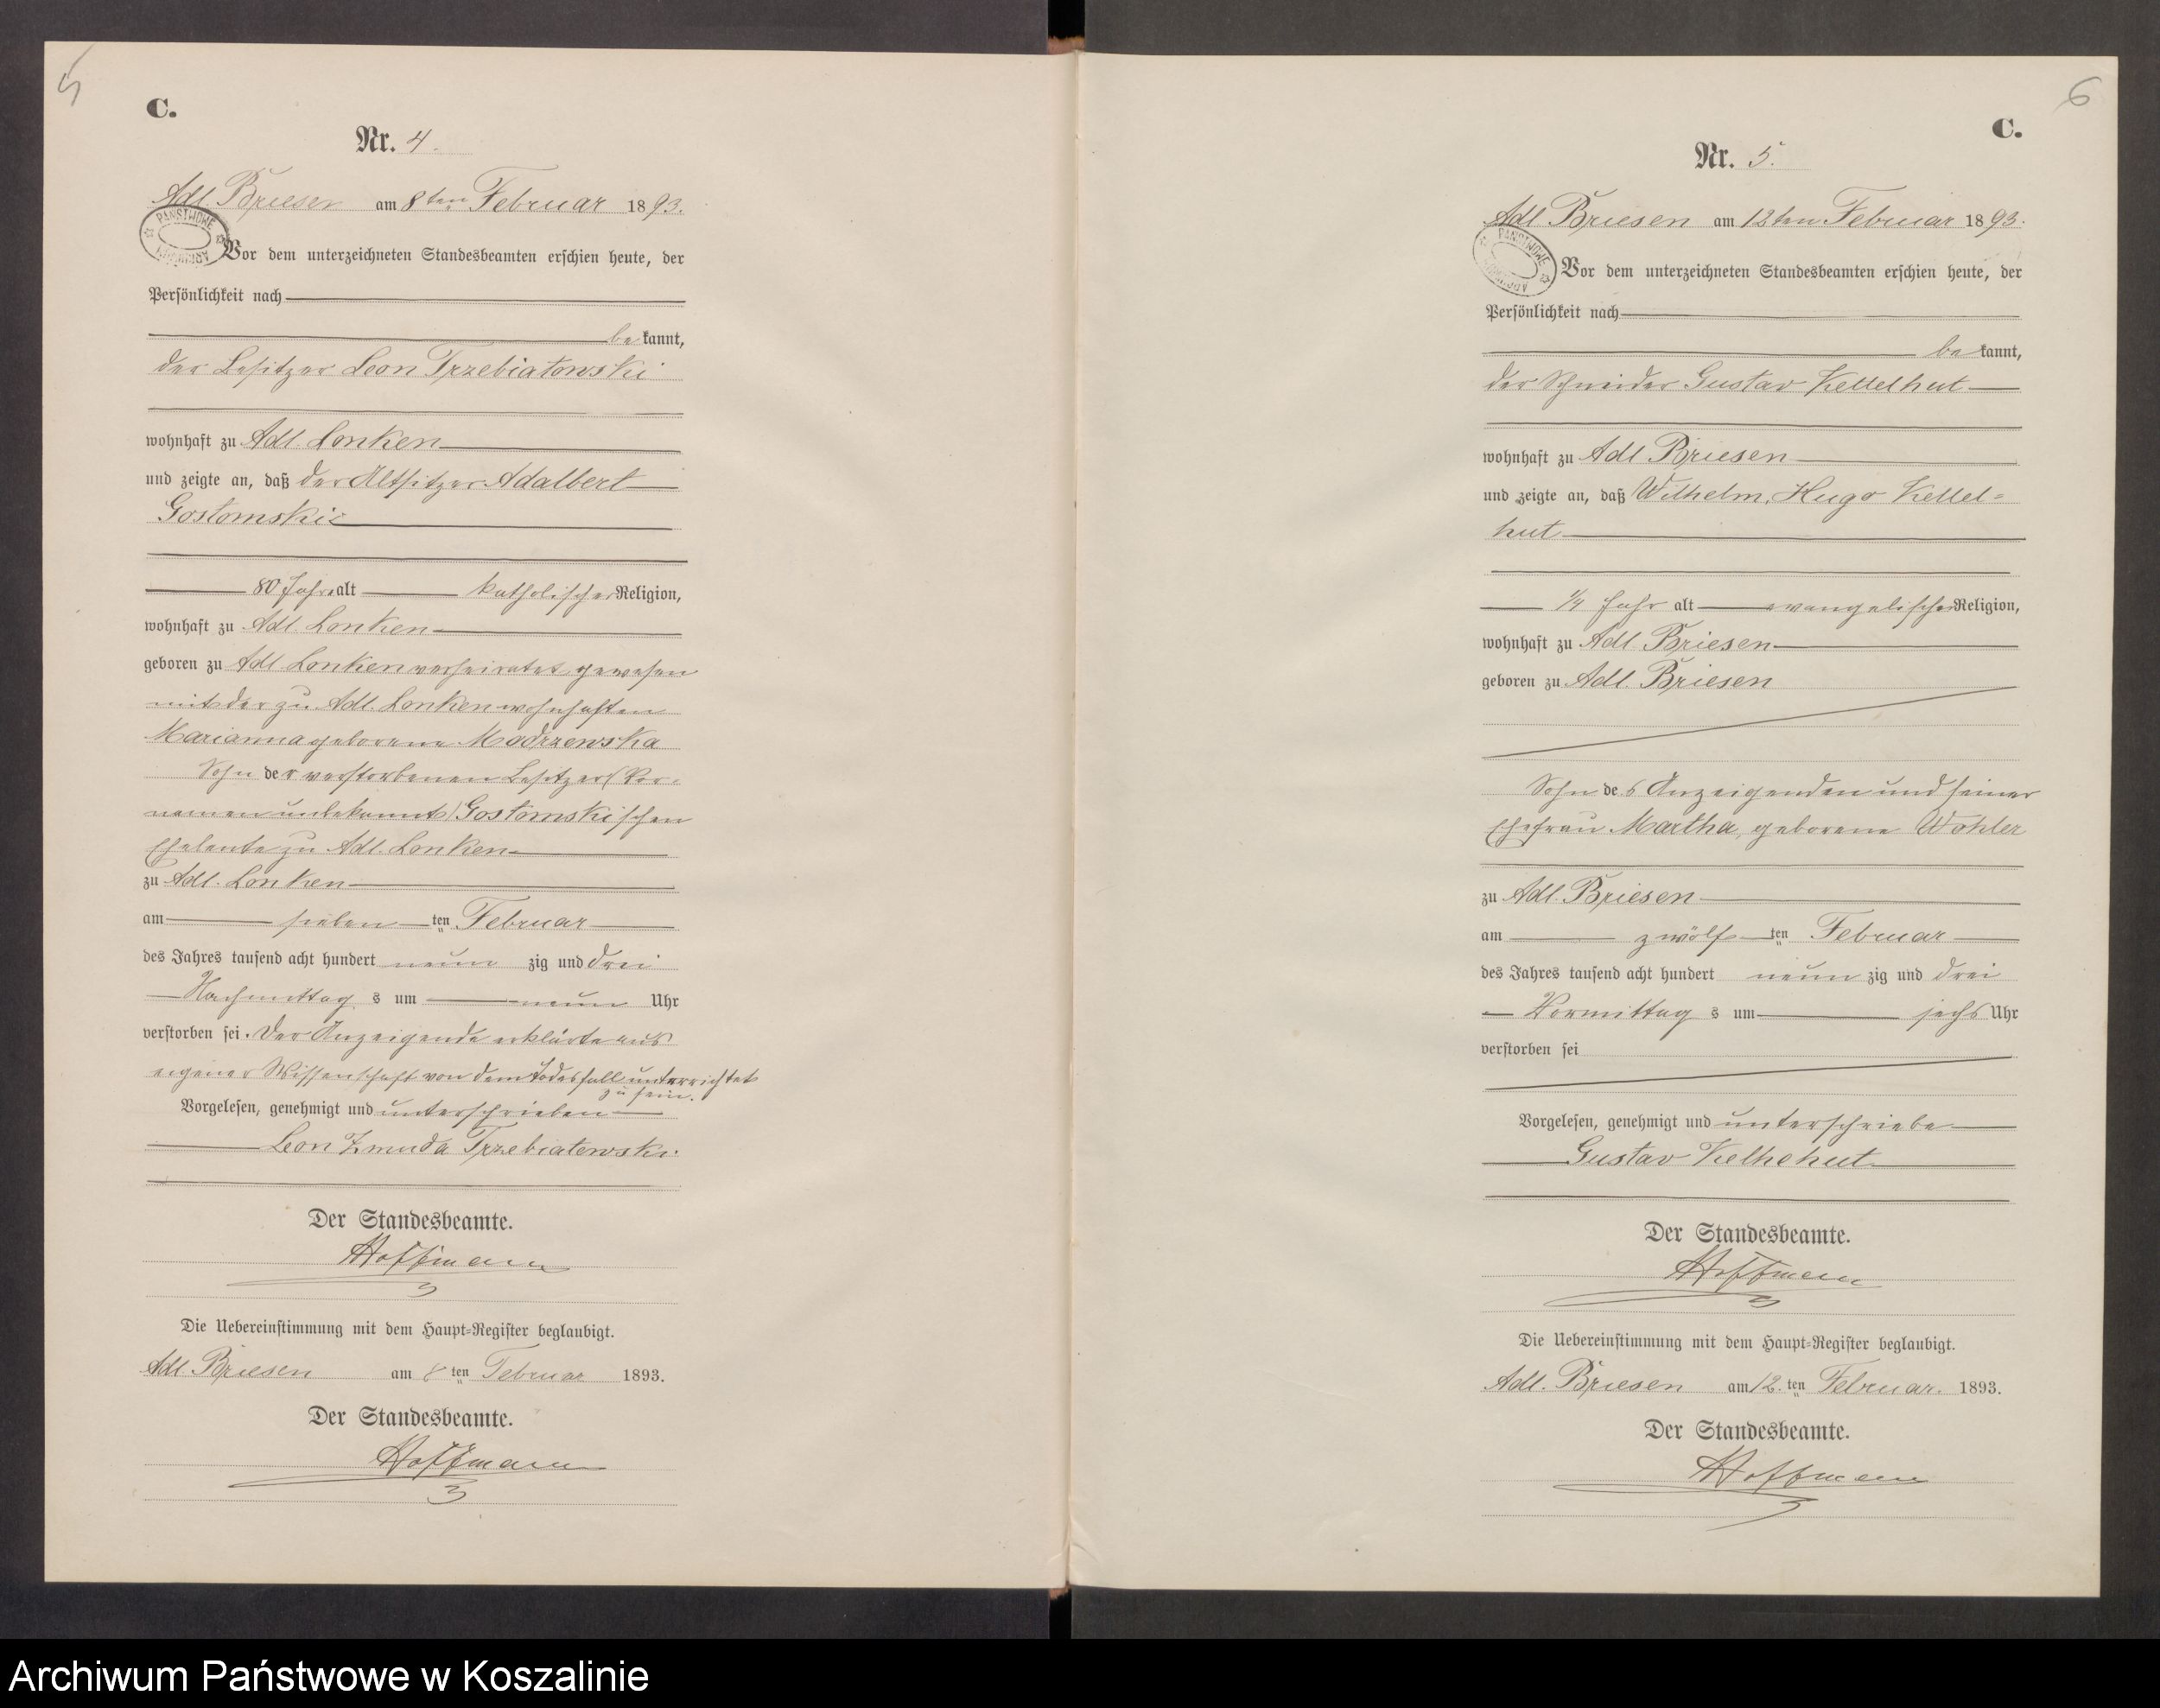 5
C.
Nr. 4.
Adl. Briesen am 8ten Februar 1893.
PAŃSTWOWE
Vor dem unterzeichneten Standesbeamten erschien heute, der
Persönlichkeit nach
be kannt,
der Besitzer Leon Trzebiatowski
wohnhaft zu Adl. Lonken
und zeigte an, daß der Altsitzer Adalbert
Gostomski
80 Jahre alt katholischer Religion,
wohnhaft zu Adl. Lonken
geboren zu Adl. Lonken verheiratet gewesen
mit der zu Adl. Lonken wohnhaften
Marianna geborene Modrzewska
Sohn der verstorbenen Besitzer (Vor-
namen unbekannt) Gostomskischen
Eheleute zu Adl. Lonken
zu Adl. Lonken
am sieben ten Februar
des Jahres tausend acht hundert neun zig und drei
Nachmittag s um neun Uhr
verstorben sei. Der Anzeigende erklärte aus
eigener Wissenschaft von dem Todesfall unterrichtet
zu sein.
Vorgelesen, genehmigt und unterschrieben
Leon Zmuda Trzebiatowski.
Der Standesbeamte.
Hoffmann
Die Uebereinstimmung mit dem Haupt-Register beglaubigt.
Adl. Briesen am 8 ten Februar 1893.
Der Standesbeamte.
Hoffmann
6
C.
Nr. 5.
Adl Briesen am 12ten Februar 1893.
PAŃSTWOWE
Vor dem unterzeichneten Standesbeamten erschien heute, der
Persönlichkeit nach
be kannt,
der Schneider Gustav Kettelhut
wohnhaft zu Adl Briesen
und zeigte an, daß Wilhelm, Hugo Kettel=
hut
1/4 Jahr alt evangelischer Religion,
wohnhaft zu Adl. Briesen
geboren zu Adl. Briesen
Sohn des Anzeigenden und seiner
Ehefrau Martha, geborene Wohler
zu Adl. Briesen
am zwölf ten Februar
des Jahres tausend acht hundert neun zig und drei
Vormittag s um sechs Uhr
verstorben sei
Vorgelesen, genehmigt und unterschriebe
Gustav Kelhehut
Der Standesbeamte.
Hoffmann
Die Uebereinstimmung mit dem Haupt-Register beglaubigt.
Adl. Briesen am 12. ten Februar. 1893.
Der Standesbeamte.
Hoffmann
Archiwum Państwowe w Koszalinie